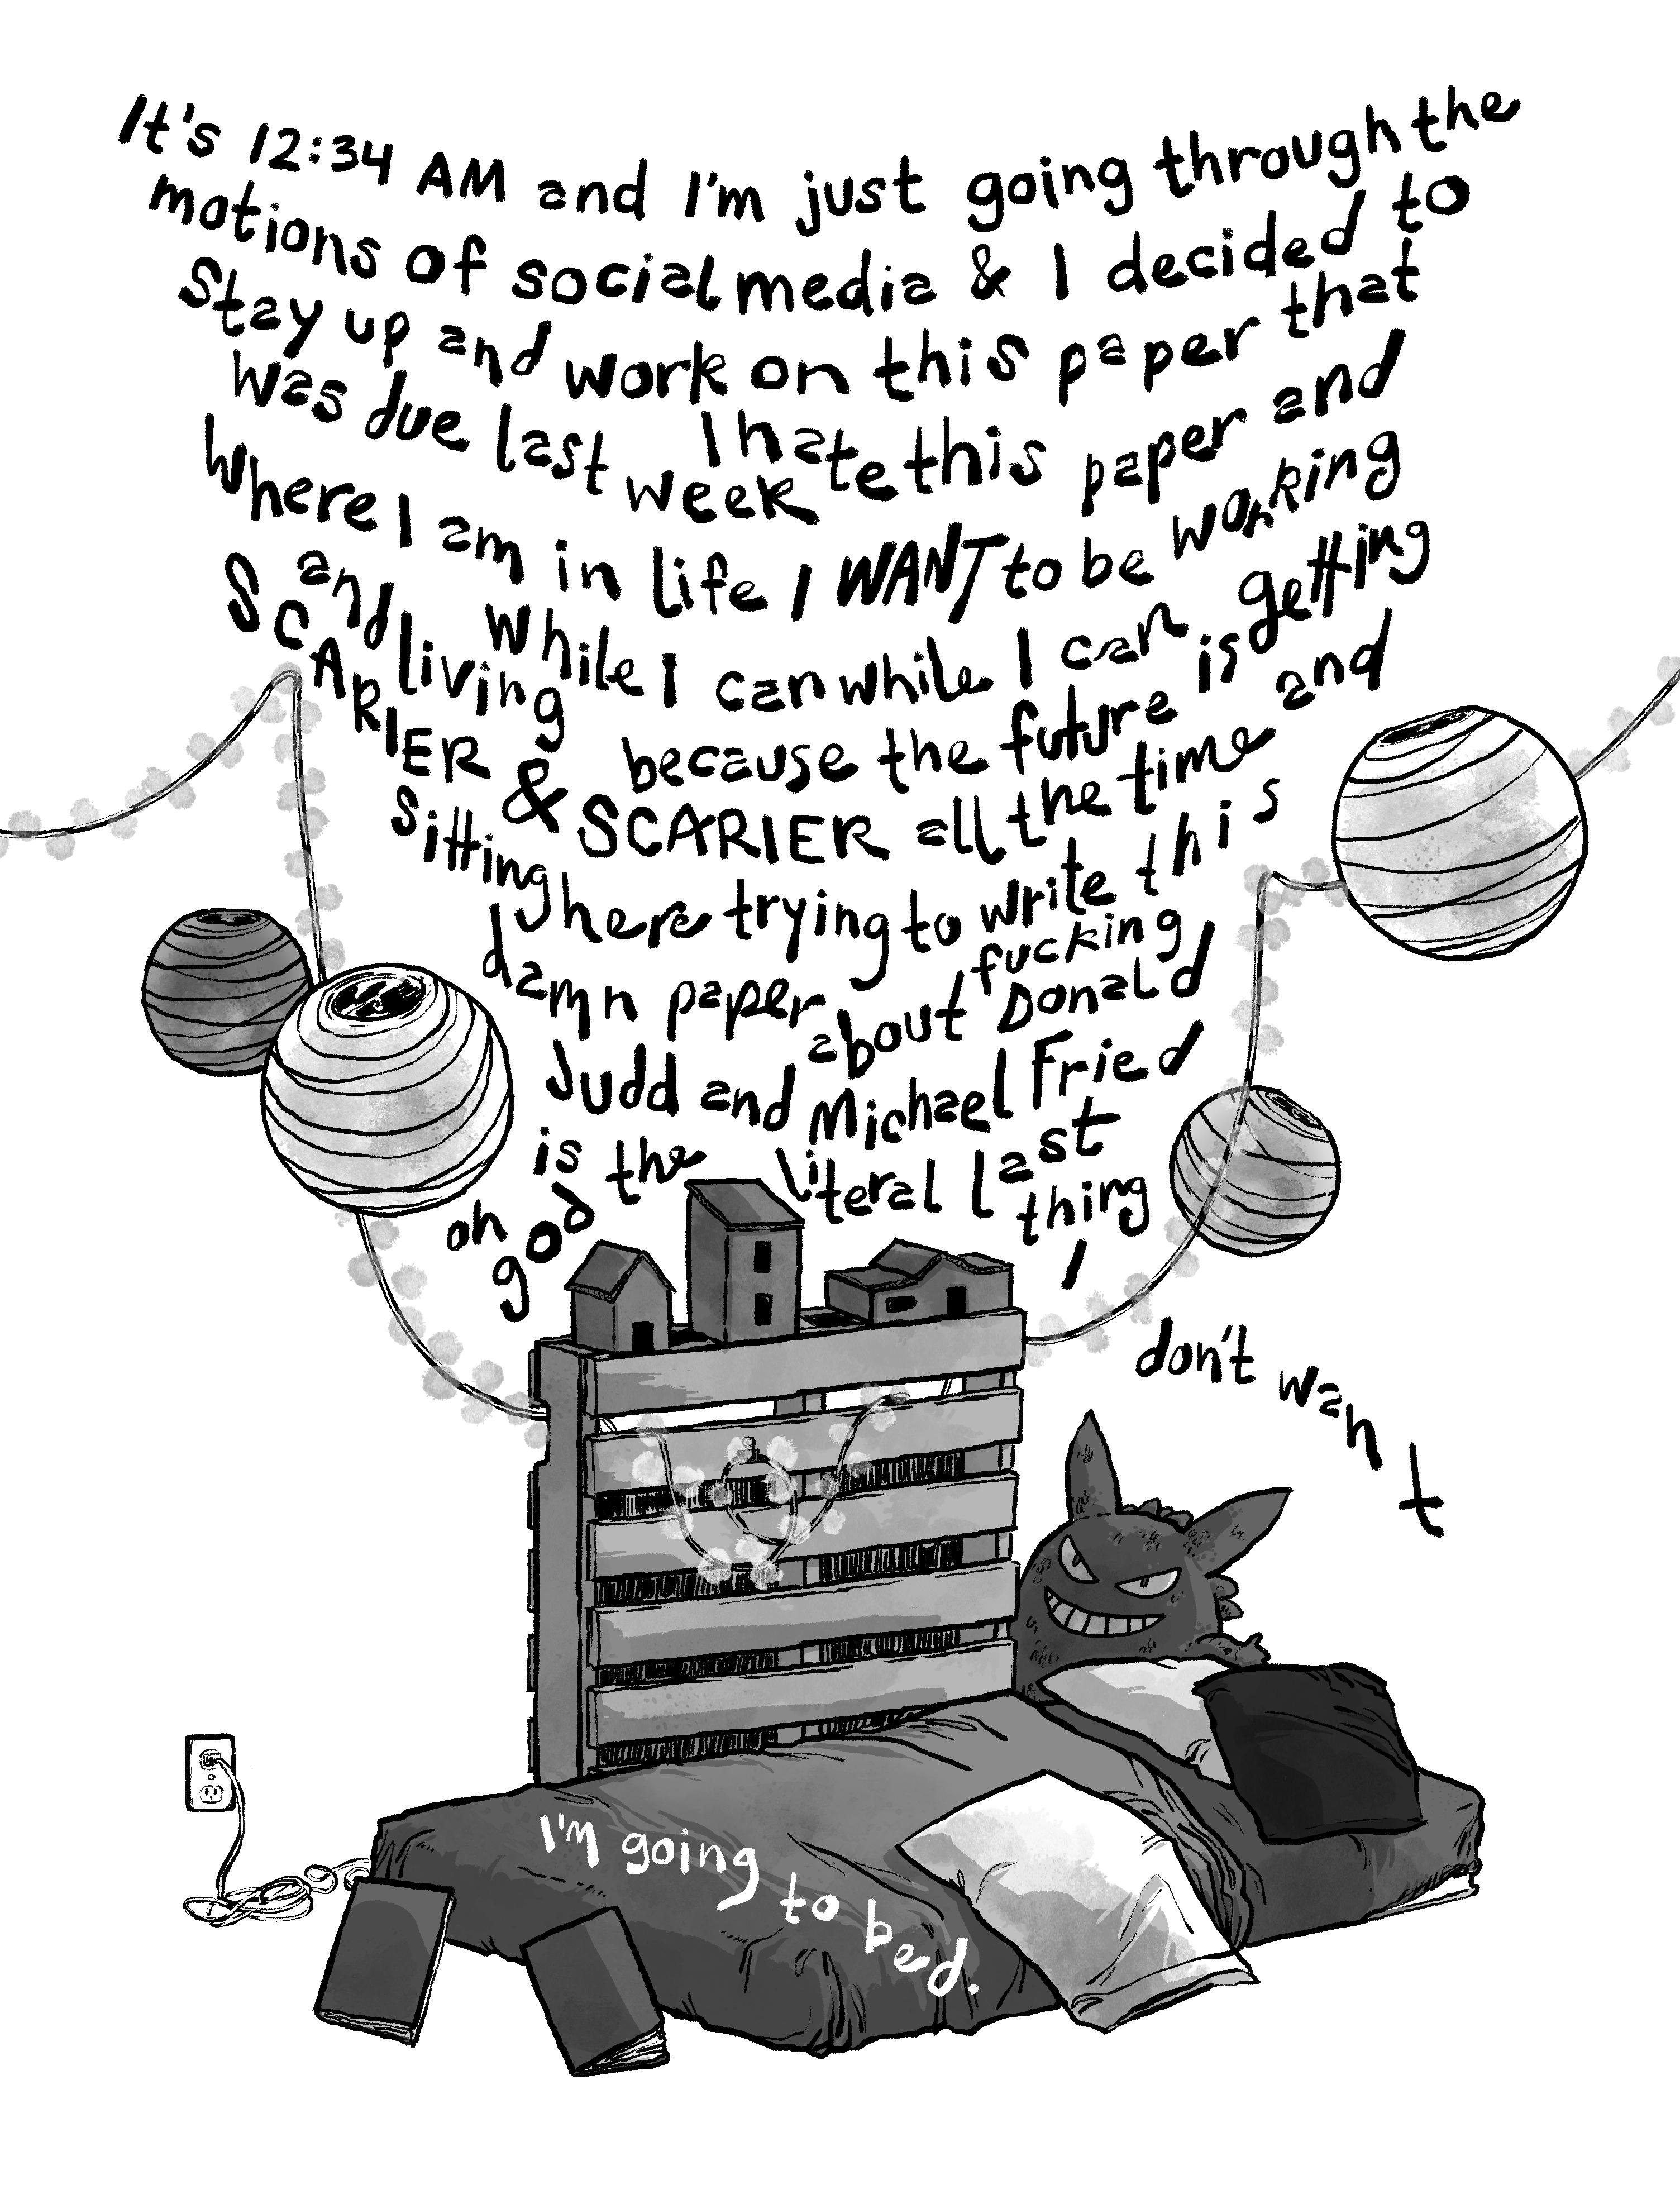 It's 12:34 AM and I'm just going through the
motions of social media & I decided to
stay up and work on this paper that
was due last week I hate this paper and
where I am in life I WANT to be working
and living while I can while I can
because the future is getting
SCARIER & SCARIER all the time and
sitting here trying to write this
damn paper about fucking Donald
Judd and Michael Fried
is the literal last
thing
oh
god
I
don't want
I'm going to bed.